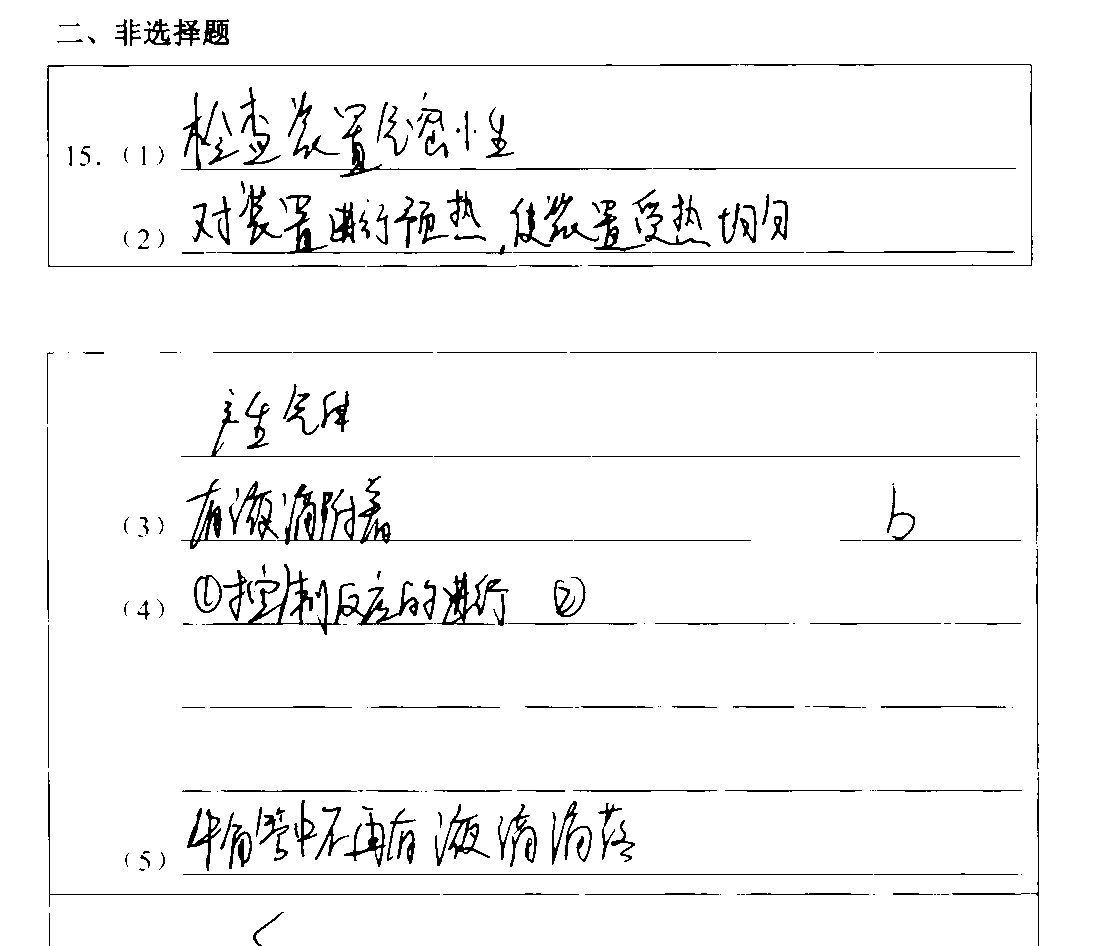 二、非选择题
15.（1）检查装置气密性
（2）对装置进行预热，使装置受热均匀
产生气体
（3）有液滴附着 b
（4）①控制反应的进行 ②
（5）牛角管中不再有液滴滴落